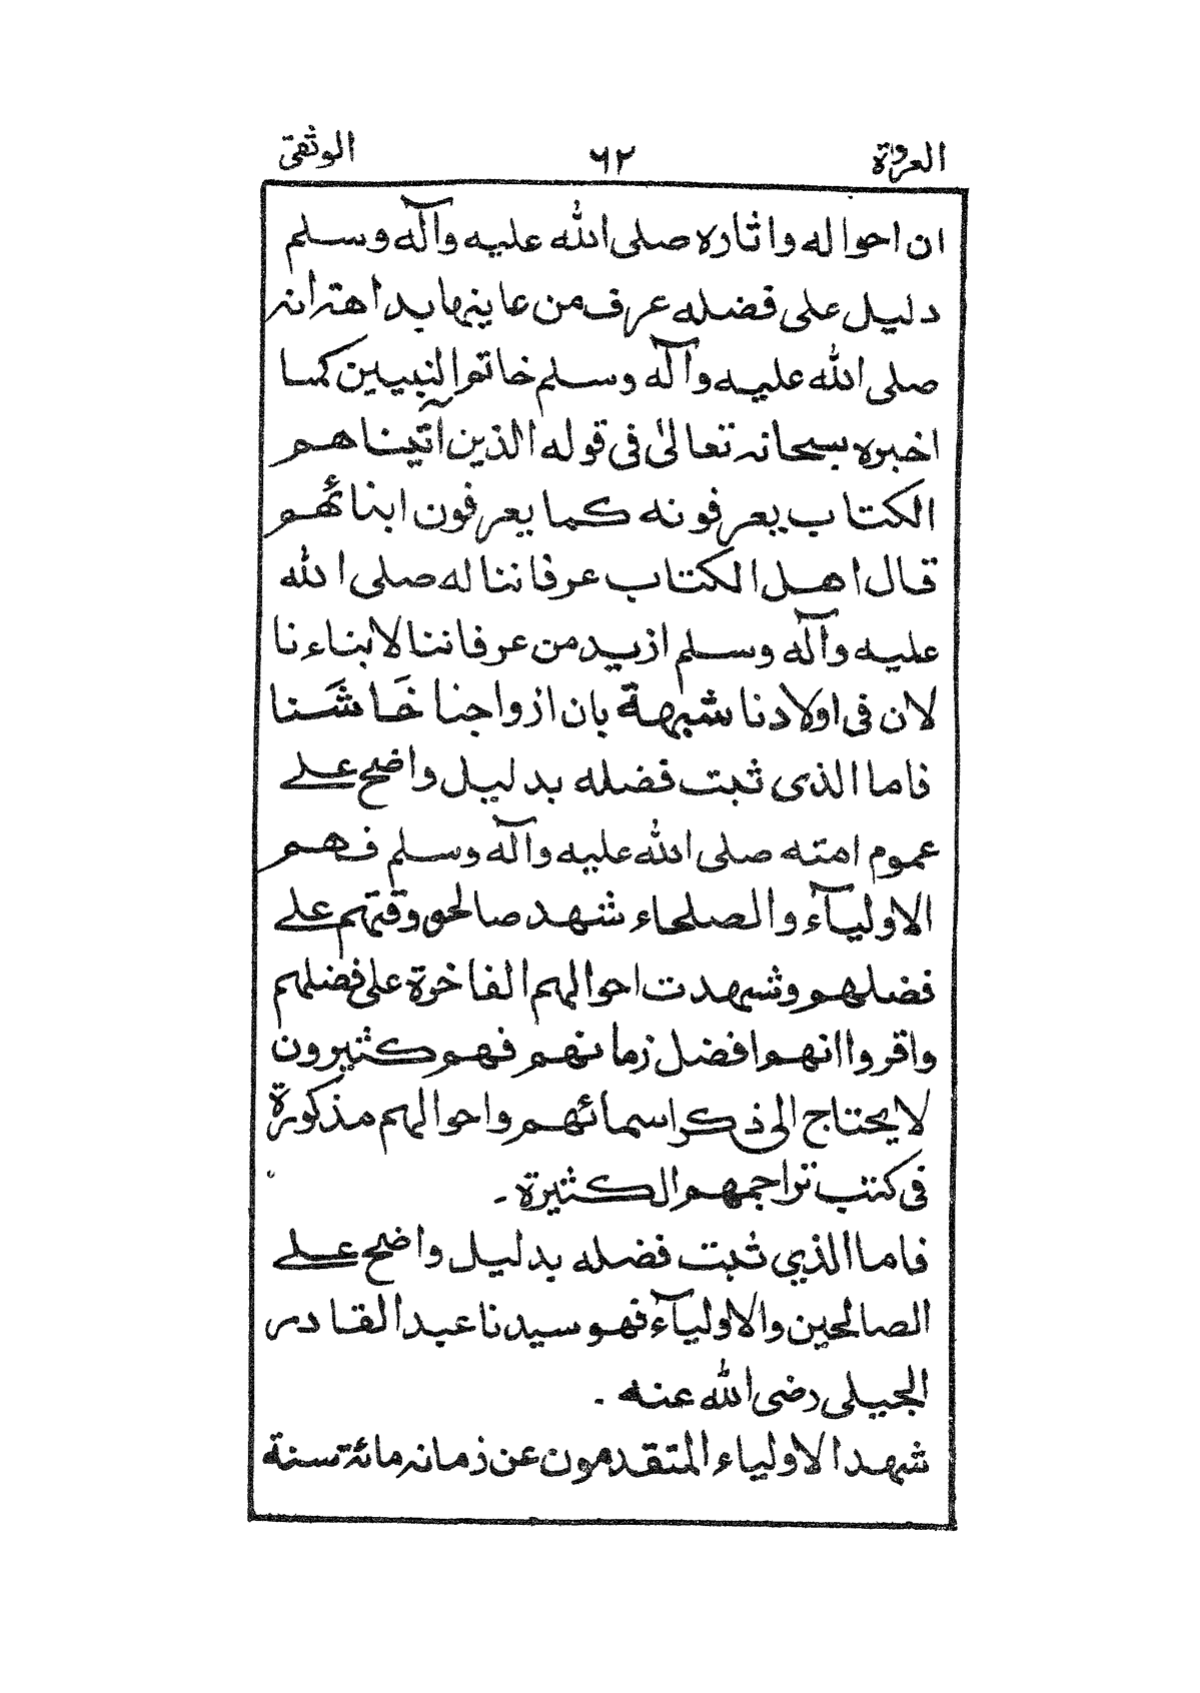 العروة ٦٢ الوثقى
ان احواله واثاره صلى الله عليه وآله وسلم
دليل على فضله عرف من عاينها بداهة انه
صلى الله عليه وآله وسلم خاتم النبيين كما
اخبره سبحانه تعالىٰ فى قوله الذين آتينا هم
الكتاب يعرفونه كما يعرفون ابنائهم
قال اهل الكتاب عرفاننا له صلى الله
عليه وآله وسلم ازيد من عرفاننا لابناءنا
لان فى اولادنا شبهة بان ازواجنا خَاشَنا
فاما الذى ثبت فضله بدليل واضح علے
عموم امته صلى الله عليه وآله وسلم فهم
الاوليآء والصلحاء شهد صالحو وقتهم علے
فضلهم وشهدت احوالهم الفاخرة على فضلهم
واقروا انهم افضل زمانهم فهم كثيرون
لا يحتاج الى ذكر اسمائهم واحوالهم مذكورة
فى كتب تراجمهم الكثيرة -
فاما الذي ثبت فضله بدليل واضح علے
الصالحين والاوليآء فهو سيدنا عبد القادر
الجيلى رضى الله عنه -
شهد الاولياء المتقدمون عن زمانه مائة سنة